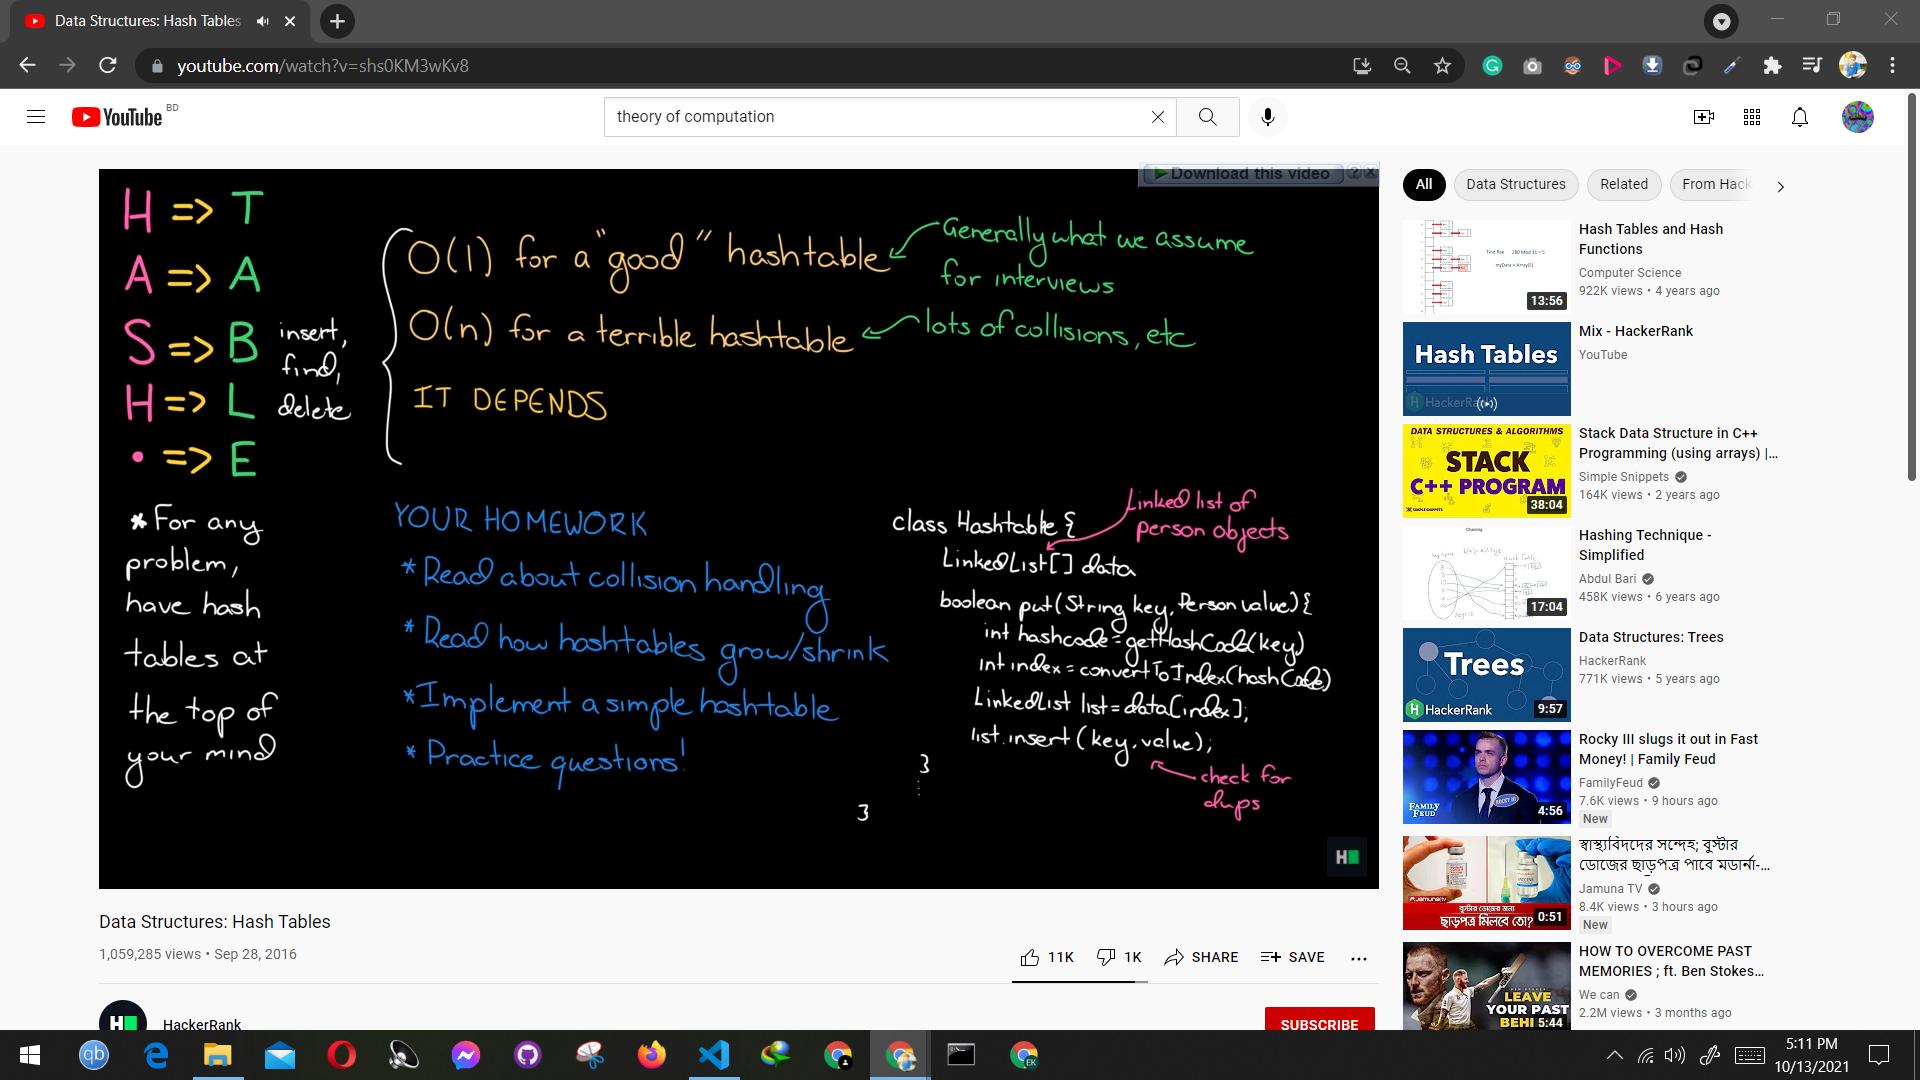 Data Structures: Hash Tables
youtube.com/watch?v=shs0KM3wKv8
YouTube BD
theory of computation
Download this video
H => T
A => A
S => B
H => L
• => E
insert,
find,
delete
O(1) for a "good" hashtable
Generally what we assume
for interviews
O(n) for a terrible hashtable
lots of collisions, etc
IT DEPENDS
* For any
problem,
have hash
tables at
the top of
your mind
YOUR HOMEWORK
* Read about collision handling
* Read how hashtables grow/shrink
* Implement a simple hashtable
* Practice questions!
Linked list of
person objects
class Hashtable {
LinkedList[] data
boolean put(String key, Person value) {
int hashcode = getHashCode(key)
int index = convertToIndex(hashCode)
LinkedList list = data[index];
list.insert(key, value);
}
check for
dups
}
H
Data Structures: Hash Tables
1,059,285 views • Sep 28, 2016
11K 1K SHARE SAVE
HackerRank
SUBSCRIBE
All Data Structures Related From Hack
Hash Tables and Hash
Functions
Computer Science
922K views • 4 years ago
13:56
Mix - HackerRank
YouTube
Hash Tables
HackerRank
Stack Data Structure in C++
Programming (using arrays) |...
Simple Snippets
164K views • 2 years ago
DATA STRUCTURES & ALGORITHMS
STACK
C++ PROGRAM
38:04
Hashing Technique -
Simplified
Abdul Bari
458K views • 6 years ago
17:04
Data Structures: Trees
HackerRank
771K views • 5 years ago
Trees
HackerRank
9:57
Rocky III slugs it out in Fast
Money! | Family Feud
FamilyFeud
7.6K views • 9 hours ago
New
FAMILY
FEUD
4:56
স্বাস্থ্যবিদদের সন্দেহ; বুস্টার
ডোজের ছাড়পত্র পাবে মডার্না-...
Jamuna TV
8.4K views • 3 hours ago
New
বুস্টার ডোজের জন্য
ছাড়পত্র মিলবে তো?
0:51
HOW TO OVERCOME PAST
MEMORIES ; ft. Ben Stokes...
We can
2.2M views • 3 months ago
LEAVE
YOUR PAST
BEHI
5:44
5:11 PM
10/13/2021